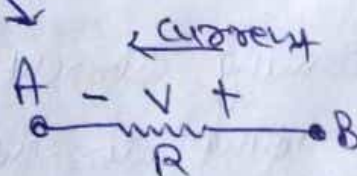 current
A - V + B
R